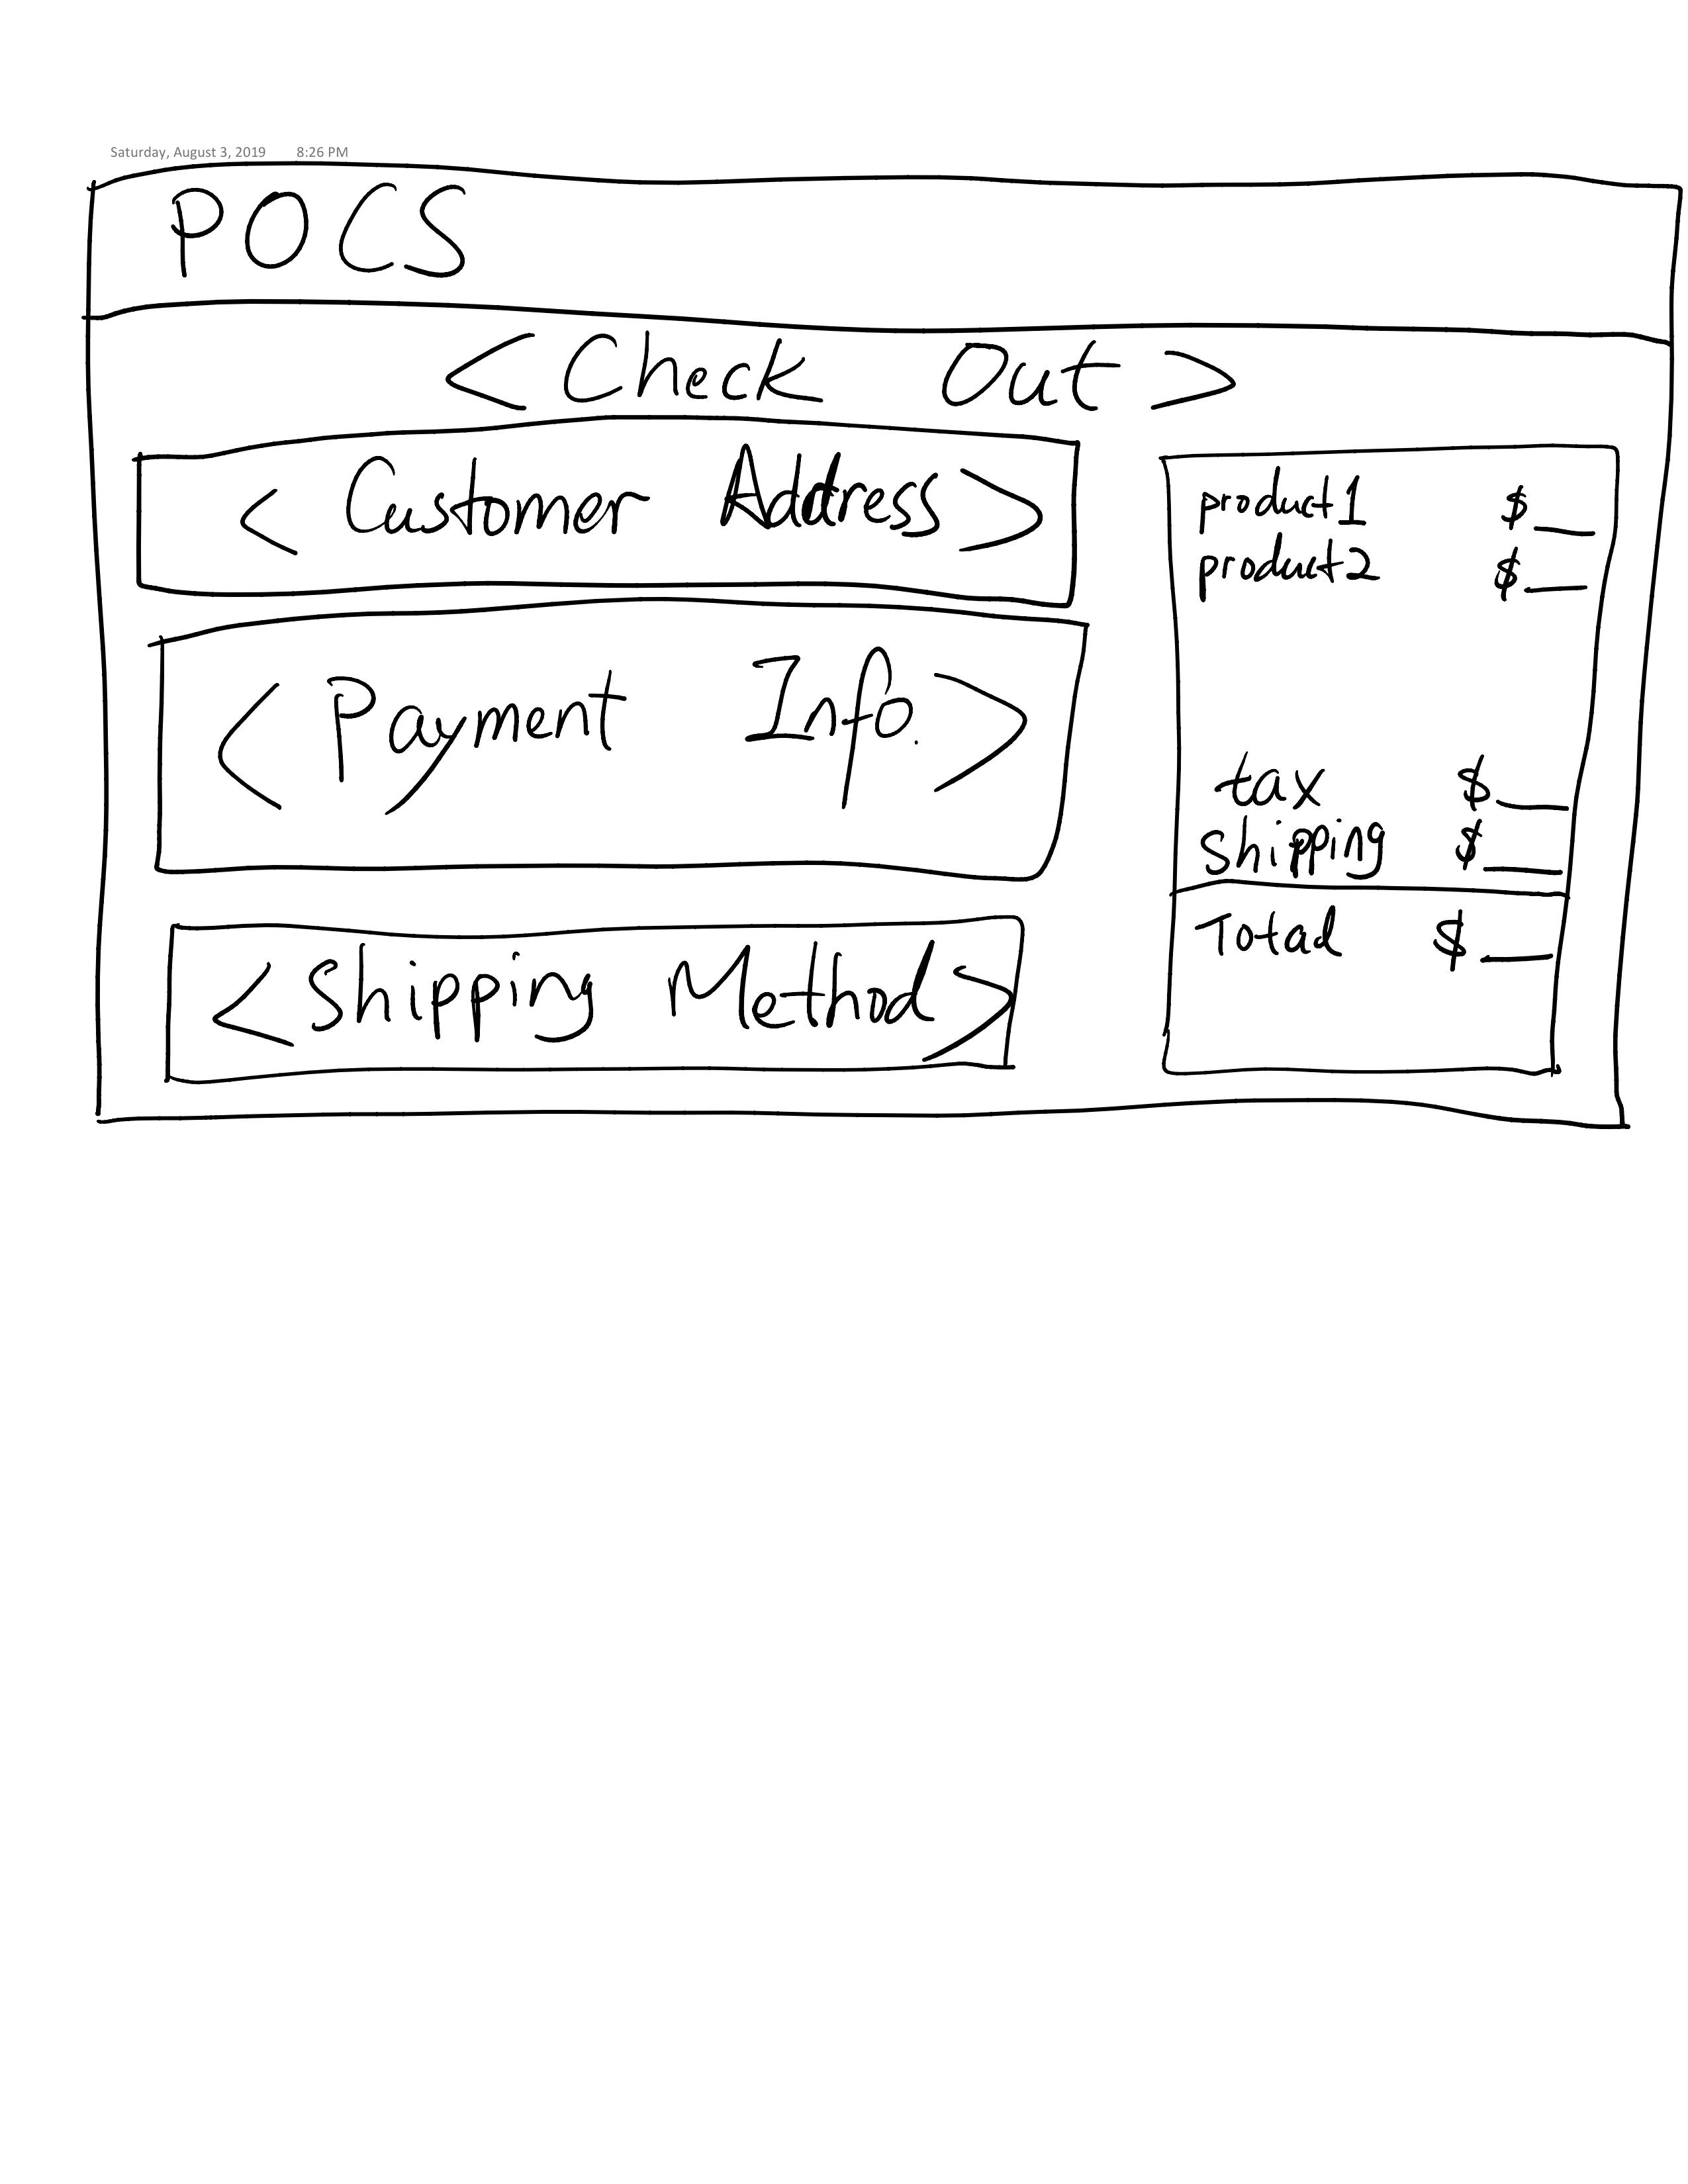 Saturday, August 3, 2019 8:26 PM
POCS
<Check Out>
< Customer Address>
<Payment Info.>
<Shipping Method>
product1 $__
product2 $__
tax $__
shipping $__
Total $__